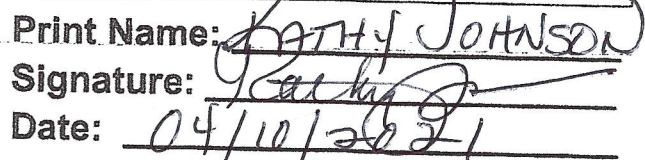 Print Name: KATHY JOHNSON
Signature: Kathy J
Date: 04/10/2021